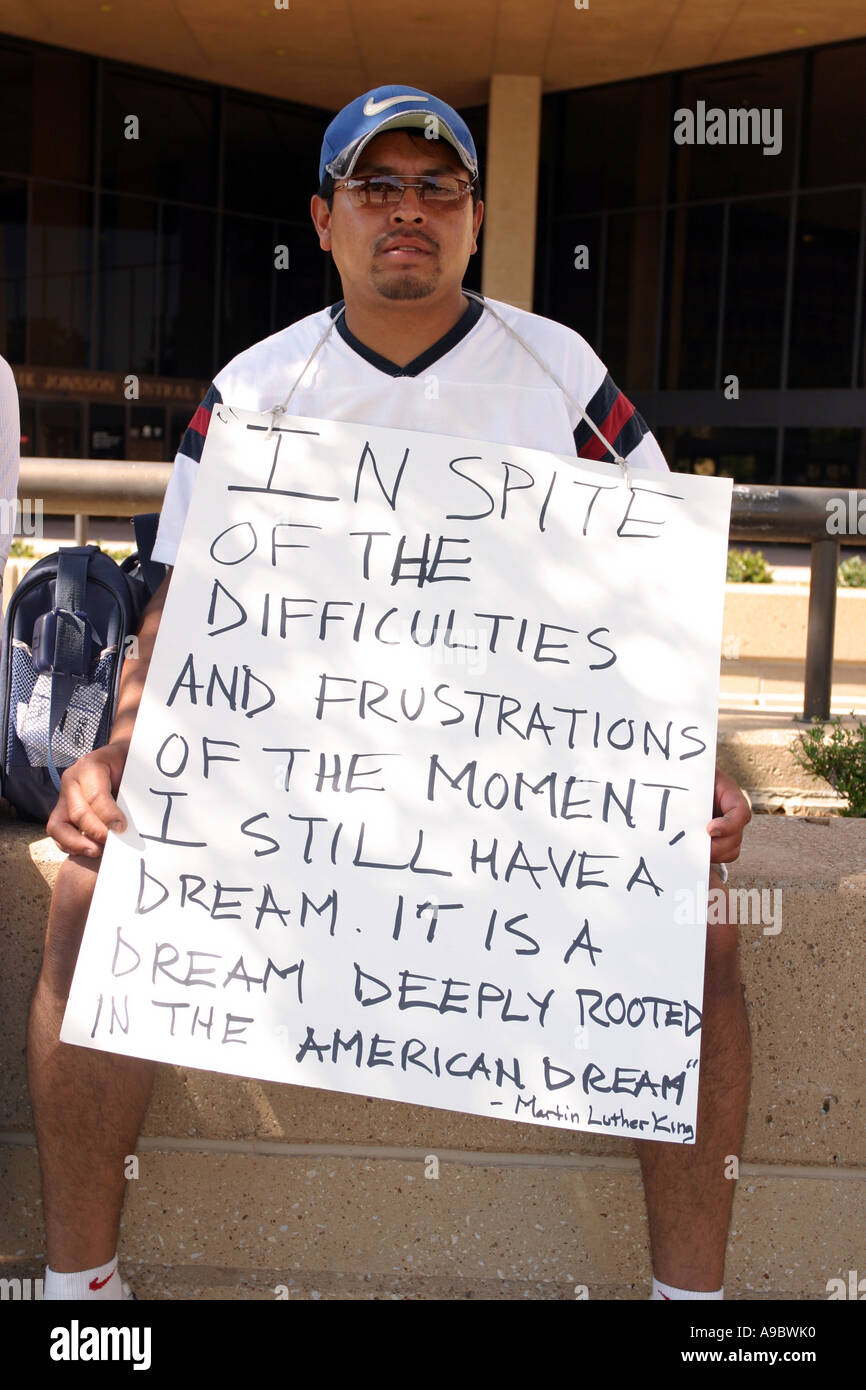 IK JONSSON CENTRAL
"IN SPITE
OF THE
DIFFICULTIES
AND FRUSTRATIONS
OF THE MOMENT,
I STILL HAVE A
DREAM. IT IS A
DREAM DEEPLY ROOTED
IN THE AMERICAN DREAM"
- Martin Luther King
alamy
alamy
Image ID: A9BWK0
www.alamy.com